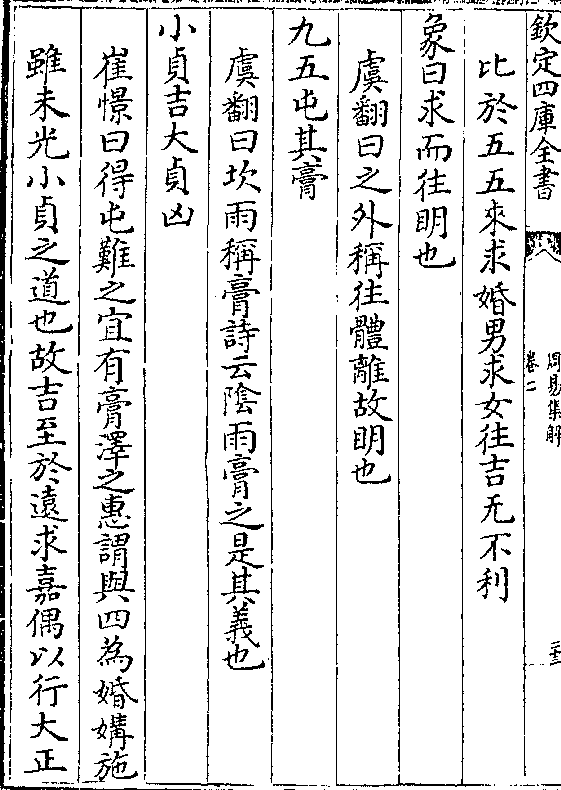 欽定四庫全書
周易集解
卷二
二十三
比於五五來求婚男求女往吉无不利
象曰求而往明也
虞翻曰之外稱往體離故明也
九五屯其膏
虞翻曰坎雨稱膏詩云陰雨膏之是其義也
小貞吉大貞凶
崔憬曰得屯難之宜有膏澤之惠謂與四為婚媾施
雖未光小貞之道也故吉至於遠求嘉偶以行大正